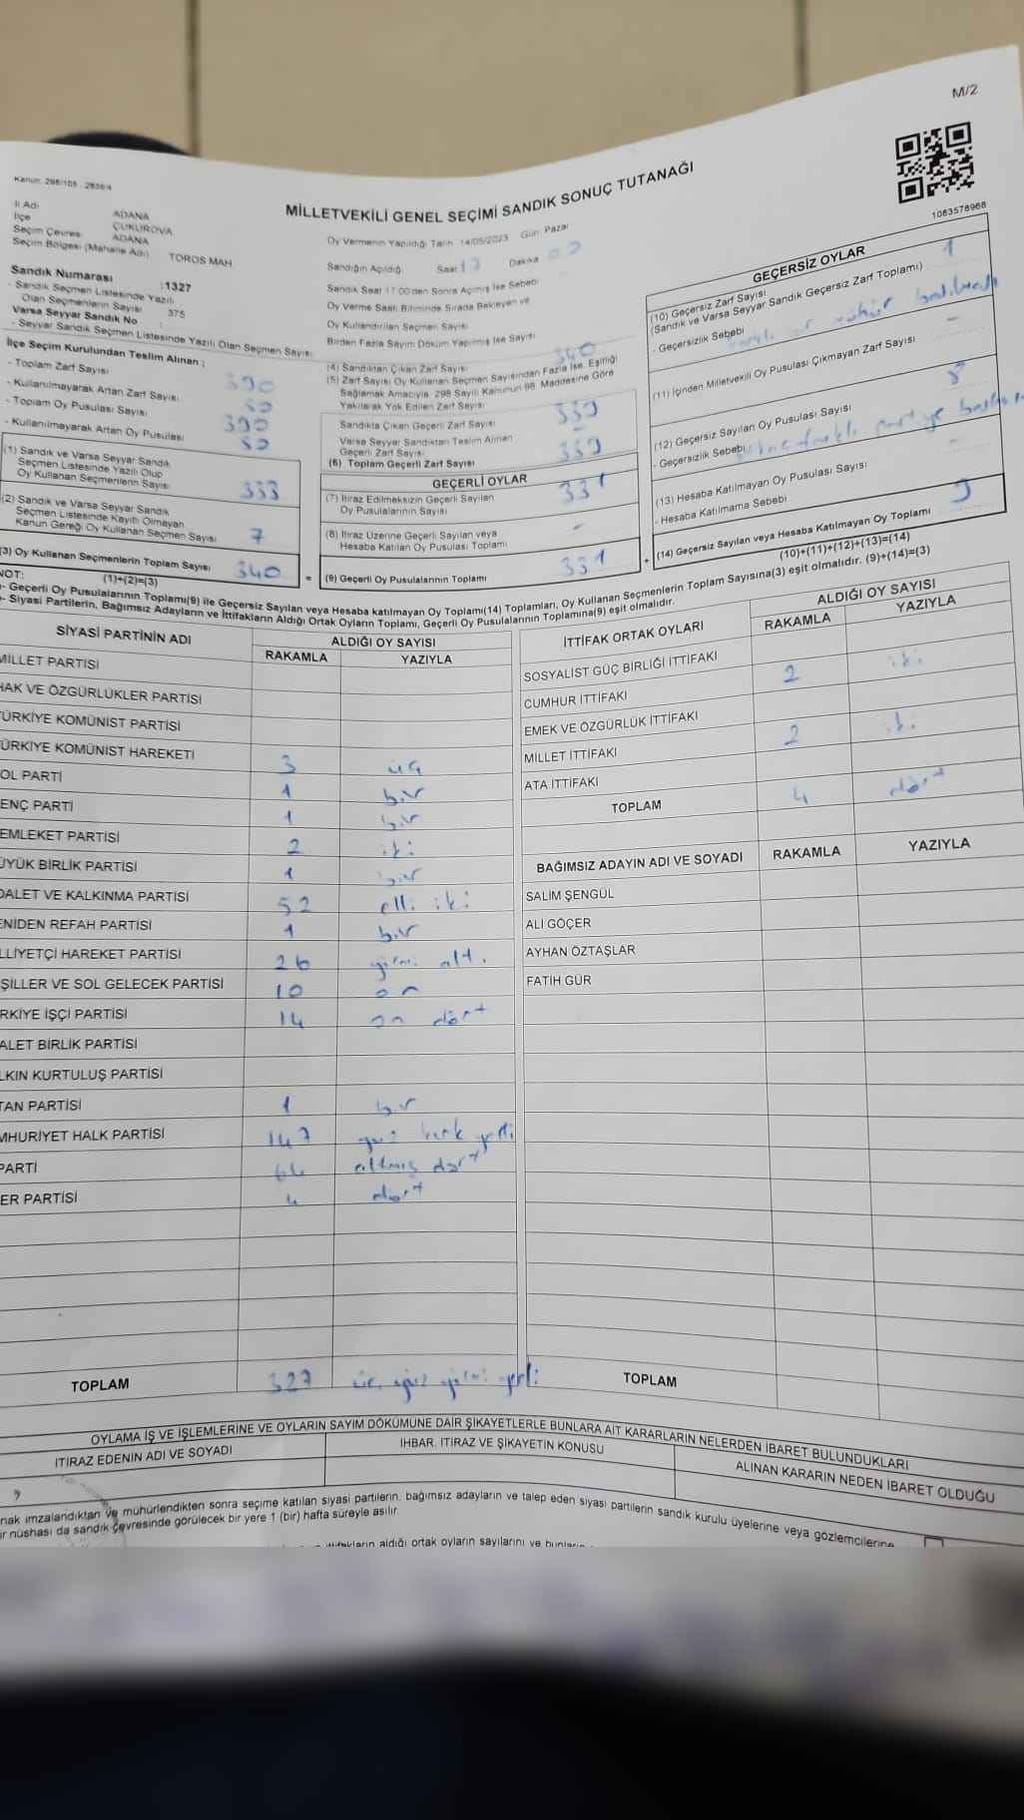 M/2
Kanun: 298/105 - 2839/4
MİLLETVEKİLİ GENEL SEÇİMİ SANDIK SONUÇ TUTANAĞI
1083578968
İl Adı ADANA
İlçe ÇUKUROVA
Seçim Çevresi ADANA
Seçim Bölgesi (Mahalle Adı) TOROS MAH
Sandık Numarası :1327
- Sandık Seçmen Listesinde Yazılı
Olan Seçmenlerin Sayısı 375
Varsa Seyyar Sandık No :
- Seyyar Sandık Seçmen Listesinde Yazılı Olan Seçmen Sayısı
İlçe Seçim Kurulundan Teslim Alınan ;
- Toplam Zarf Sayısı 390
- Kullanılmayarak Artan Zarf Sayısı 50
- Toplam Oy Pusulası Sayısı 390
- Kullanılmayarak Artan Oy Pusulası 50
(1) Sandık ve Varsa Seyyar Sandık
Seçmen Listesinde Yazılı Olup
Oy Kullanan Seçmenlerin Sayısı 333
(2) Sandık ve Varsa Seyyar Sandık
Seçmen Listesinde Kayıtlı Olmayan
Kanun Gereği Oy Kullanan Seçmen Sayısı 7
(3) Oy Kullanan Seçmenlerin Toplam Sayısı 340
(1)+(2)=(3)
Oy Vermenin Yapıldığı Tarih: 14/05/2023 Gün: Pazar
Sandığın Açıldığı Saat 17 Dakika 00
Sandık Saat 17.00'den Sonra Açılmış İse Sebebi
Oy Verme Saati Bitiminde Sırada Bekleyen ve
Oy Kullandırılan Seçmen Sayısı
Birden Fazla Sayım Döküm Yapılmış İse Sayısı
(4) Sandıktan Çıkan Zarf Sayısı 340
(5) Zarf Sayısı Oy Kullanan Seçmen Sayısından Fazla İse, Eşitliği
Sağlamak Amacıyla, 298 Sayılı Kanunun 98. Maddesine Göre
Yakılarak Yok Edilen Zarf Sayısı
Sandıkta Çıkan Geçerli Zarf Sayısı 339
Varsa Seyyar Sandıktan Teslim Alınan
Geçerli Zarf Sayısı -
(6) Toplam Geçerli Zarf Sayısı 339
GEÇERLİ OYLAR
(7) İtiraz Edilmeksizin Geçerli Sayılan
Oy Pusulalarının Sayısı 331
(8) İtiraz Üzerine Geçerli Sayılan veya
Hesaba Katılan Oy Pusulası Toplamı -
= (9) Geçerli Oy Pusulalarının Toplamı 331
GEÇERSİZ OYLAR
(10) Geçersiz Zarf Sayısı
(Sandık ve Varsa Seyyar Sandık Geçersiz Zarf Toplamı) 1
- Geçersizlik Sebebi
(11) İçinden Milletvekili Oy Pusulası Çıkmayan Zarf Sayısı -
(12) Geçersiz Sayılan Oy Pusulası Sayısı 8
- Geçersizlik Sebebi
(13) Hesaba Katılmayan Oy Pusulası Sayısı
- Hesaba Katılmama Sebebi
+ (14) Geçersiz Sayılan veya Hesaba Katılmayan Oy Toplamı 9
(10)+(11)+(12)+(13)=(14)
NOT:
- Geçerli Oy Pusulalarının Toplamı(9) ile Geçersiz Sayılan veya Hesaba katılmayan Oy Toplamı(14) Toplamları, Oy Kullanan Seçmenlerin Toplam Sayısına(3) eşit olmalıdır. (9)+(14)=(3)
- Siyasi Partilerin, Bağımsız Adayların ve İttifakların Aldığı Ortak Oyların Toplamı, Geçerli Oy Pusulalarının Toplamına(9) eşit olmalıdır.
SİYASİ PARTİNİN ADI ALDIĞI OY SAYISI
RAKAMLA YAZIYLA
MİLLET PARTİSİ
HAK VE ÖZGÜRLÜKLER PARTİSİ
TÜRKİYE KOMÜNİST PARTİSİ
ÜRKİYE KOMÜNİST HAREKETİ 3 üç
OL PARTİ 1 bir
ENÇ PARTİ 1 bir
EMLEKET PARTİSİ 2 iki
ÜYÜK BİRLİK PARTİSİ 1 bir
DALET VE KALKINMA PARTİSİ 52 elli iki
ENİDEN REFAH PARTİSİ 1 bir
LLİYETÇİ HAREKET PARTİSİ 26 yirmi altı
ŞİLLER VE SOL GELECEK PARTİSİ 10 on
RKİYE İŞÇİ PARTİSİ 14 on dört
ALET BİRLİK PARTİSİ
LKIN KURTULUŞ PARTİSİ
TAN PARTİSİ 1 bir
MHURİYET HALK PARTİSİ 147 yüz kırk yedi
PARTİ 64 altmış dört
ER PARTİSİ 4 dört
TOPLAM 327 üç yüz yirmi yedi
İTTİFAK ORTAK OYLARI ALDIĞI OY SAYISI
RAKAMLA YAZIYLA
SOSYALİST GÜÇ BİRLİĞİ İTTİFAKI
CUMHUR İTTİFAKI 2 iki
EMEK VE ÖZGÜRLÜK İTTİFAKI
MİLLET İTTİFAKI 2 iki
ATA İTTİFAKI
TOPLAM 4 dört
BAĞIMSIZ ADAYIN ADI VE SOYADI RAKAMLA YAZIYLA
SALİM ŞENGÜL
ALİ GÖÇER
AYHAN ÖZTAŞLAR
FATİH GÜR
TOPLAM
OYLAMA İŞ VE İŞLEMLERİNE VE OYLARIN SAYIM DÖKÜMÜNE DAİR ŞİKAYETLERLE BUNLARA AİT KARARLARIN NELERDEN İBARET BULUNDUKLARI
İTİRAZ EDENİN ADI VE SOYADI İHBAR, İTİRAZ VE ŞİKAYETİN KONUSU ALINAN KARARIN NEDEN İBARET OLDUĞU
nak imzalandıktan ve mühürlendikten sonra seçime katılan siyasi partilerin, bağımsız adayların ve talep eden siyasi partilerin sandık kurulu üyelerine veya gözlemcilerine
ir nüshası da sandık çevresinde görülecek bir yere 1 (bir) hafta süreyle asılır.
ittifakların aldığı ortak oyların sayılarını ve